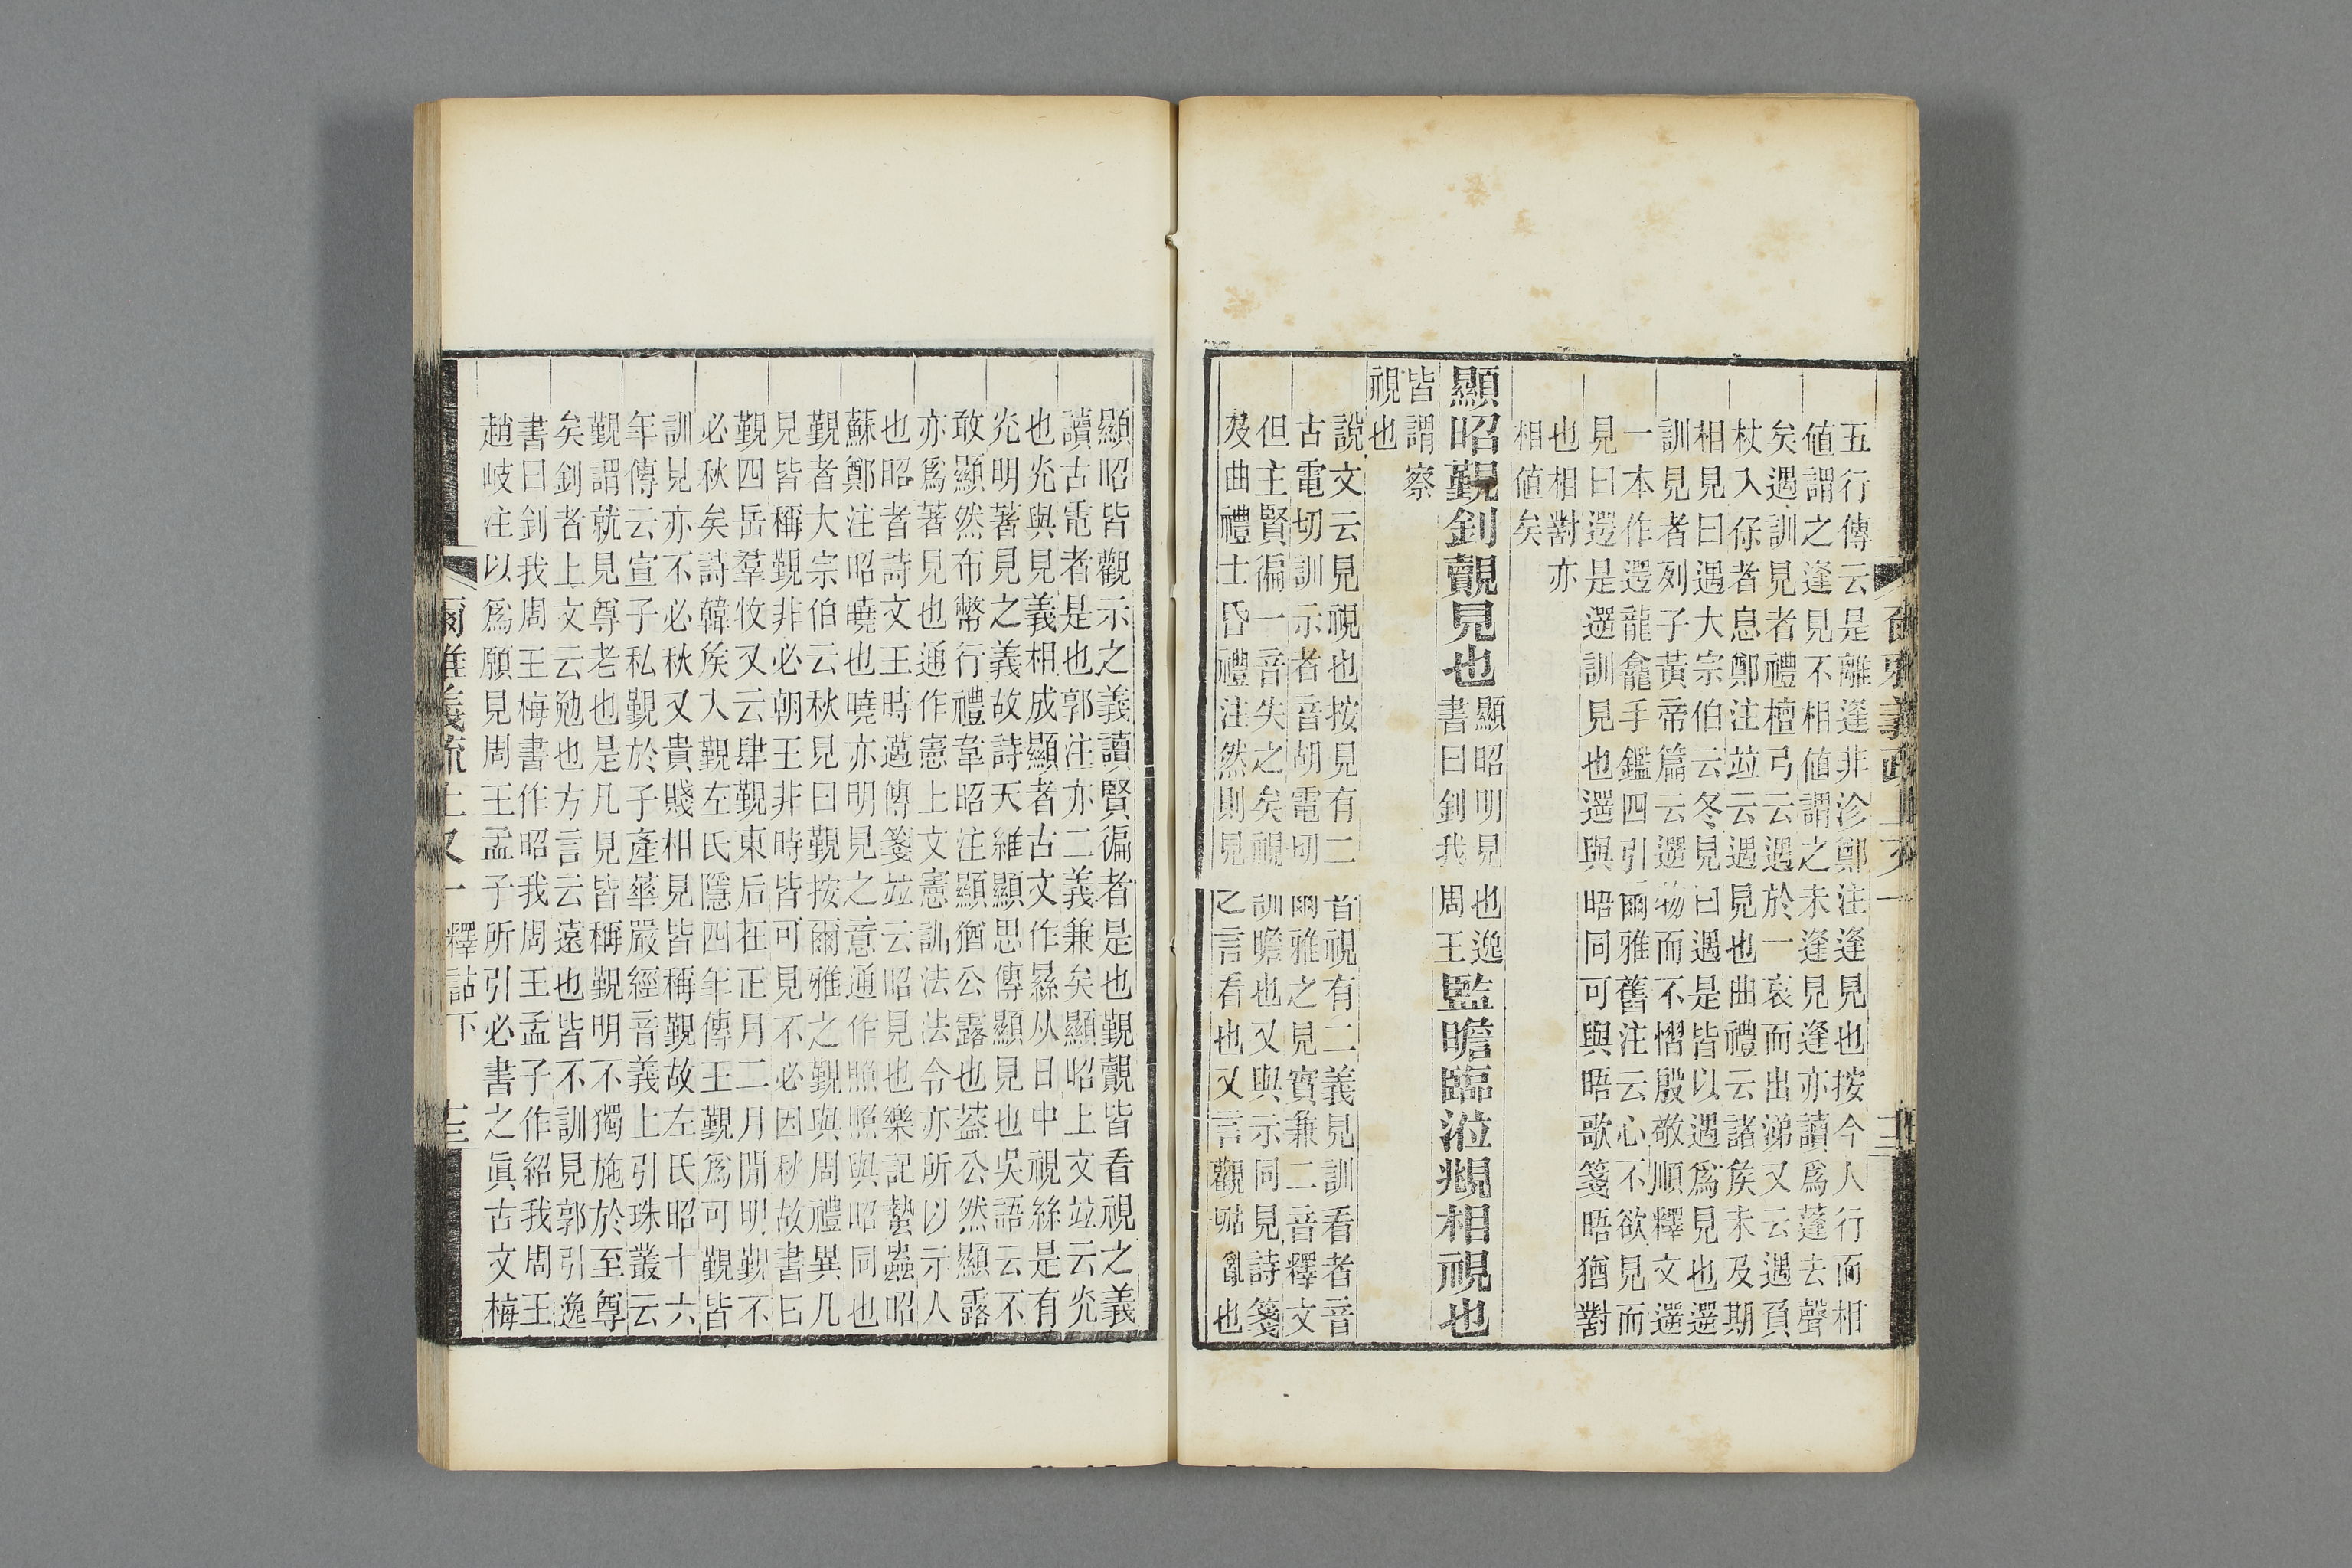 五行傳云是離逢非沴鄭注逢見也按今人行而相
値謂之逢見不相値謂之未逢見逢亦讀爲蓬去聲
矣遇訓見者禮檀弓云遇於一哀而出涕又云遇負
杖入保者息鄭注竝云遇見也曲禮云諸矦未及期
相見曰遇大宗伯云冬見曰遇是皆以遇爲見也遻
訓見者列子黃帝篇云遻物而不慴殷敬順釋文遻
一本作遌龍龕手鑑四引爾雅舊注云心不欲見而
見曰遻是遻訓見也遻與晤同可與晤歌箋晤猶對
也相對亦
相値矣
顯昭覲釗覿見也
顯昭明見也逸
書曰釗我周王
監瞻臨涖頫相視也
皆謂察
視也
說文云見視也按見有二音視有二義見訓看者音
古電切訓示者音胡電切爾雅之見實兼二音釋文
但主賢徧一音失之矣視訓瞻也又與示同見詩箋
及曲禮士昏禮注然則見之言看也又言觀睹亂也
顯昭皆觀示之義讀賢徧者是也覲覿皆看視之義
讀古電者是也郭注亦二義兼矣顯昭上文竝云光
也光與見義相成顯者古文作㬎从日中視絲是有
光明著見之義故詩天維顯思傳顯見也吳語云不
敢顯然布幣行禮韋昭注顯猶公露也葢公然顯露
亦爲著見也通作憲上文憲訓法法令亦所以示人
也昭者詩文王時邁傳箋竝云昭見也樂記蟄蟲昭
蘇鄭注昭曉也曉亦明見之意通作照照與昭同也
覲者大宗伯云秋見曰覲按爾雅之覲與周禮異凡
見皆稱覲非必朝王非時皆可見不必因秋故書曰
覲四岳羣牧又云肆覲東后在正月二月閒明覲不
必秋矣詩韓矦入覲左氏隱四年傳王覲爲可覲皆
訓見亦不必秋又貴賤相見皆稱覲故左氏昭十六
年傳云宣子私覲於子產華嚴經音義上引珠叢云
覲謂就見尊老也是凡見皆稱覲明不獨施於至尊
矣釗者上文云勉也方言云遠也皆不訓見郭引逸
書曰釗我周王梅書作昭我周王孟子作紹我周王
趙岐注以爲願見周王孟子所引必書之眞古文梅
爾雅義疏上又一 釋詁下